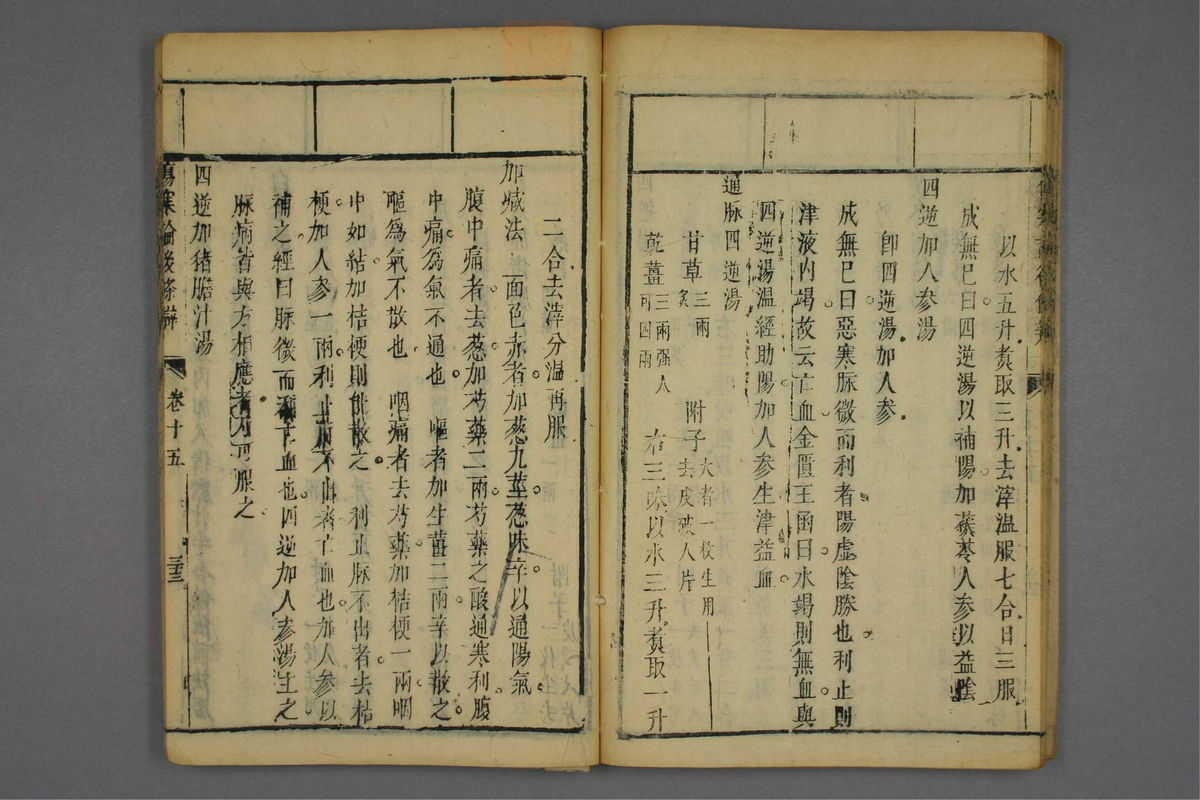 以水五升煑取三升去滓温服七合日三服
成無已曰四逆湯以補陽加茯苓人參以益陰
四逆加人参湯
卽四逆湯加人参
成無已曰惡寒脉微而利者陽虛陰勝也利止則
津液内竭故云亡血金匱王函曰水竭則無血與
四逆湯温經助陽加人参生津益血
通脉四逆湯
甘草三兩炙 附子大者一枚生用去皮破八片
乾薑三兩强人可四兩 右三味以水三升煑取一升
二合去滓分温再服
加减法 面色赤者加葱九莖葱味辛以通陽氣
腹中痛者去葱加芍藥二兩芍藥之酸通寒利腹
中痛爲氣不通也 嘔者加生薑二兩辛以散之
嘔爲氣不散也 咽痛者去芍藥加桔梗一兩咽
中如結加桔梗則能散之 利止脉不出者去桔
梗加人参一兩利止脉不出者亡血也加人参以
補之經曰脉微而利亡血也四逆加人参湯主之
脉病皆與方相應者乃可服之
四逆加猪膽汁湯
傷寒論後條辯 卷十五 三三